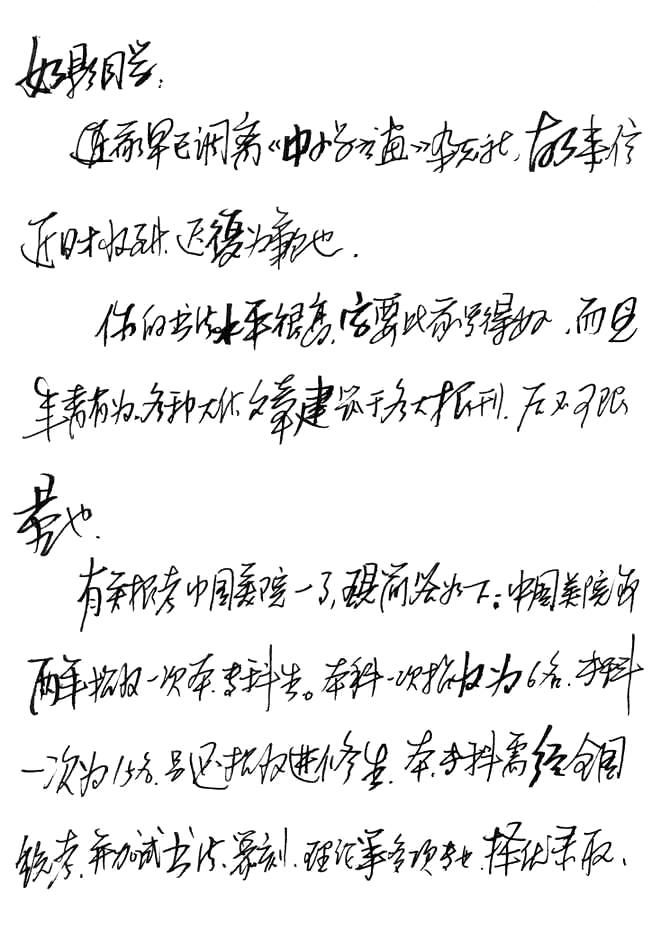 如影同学：
近我早已调离《中小学书画》杂志社，故来信
近日才收到，迟复为歉也．
你的书法水平很高，字要比我写得好，而且
年青有为，各种大作文章建筑于各大报刊，后不可限
量也．
有关报考中国美院一事，现简答如下：中国美院每
两年招收一次本、专科生。本科一次招收为6名，专科
一次为15名，另还招收进修生．本、专科需经全国
统考，并加试书法、篆刻、理论等各项专业，择优录取、